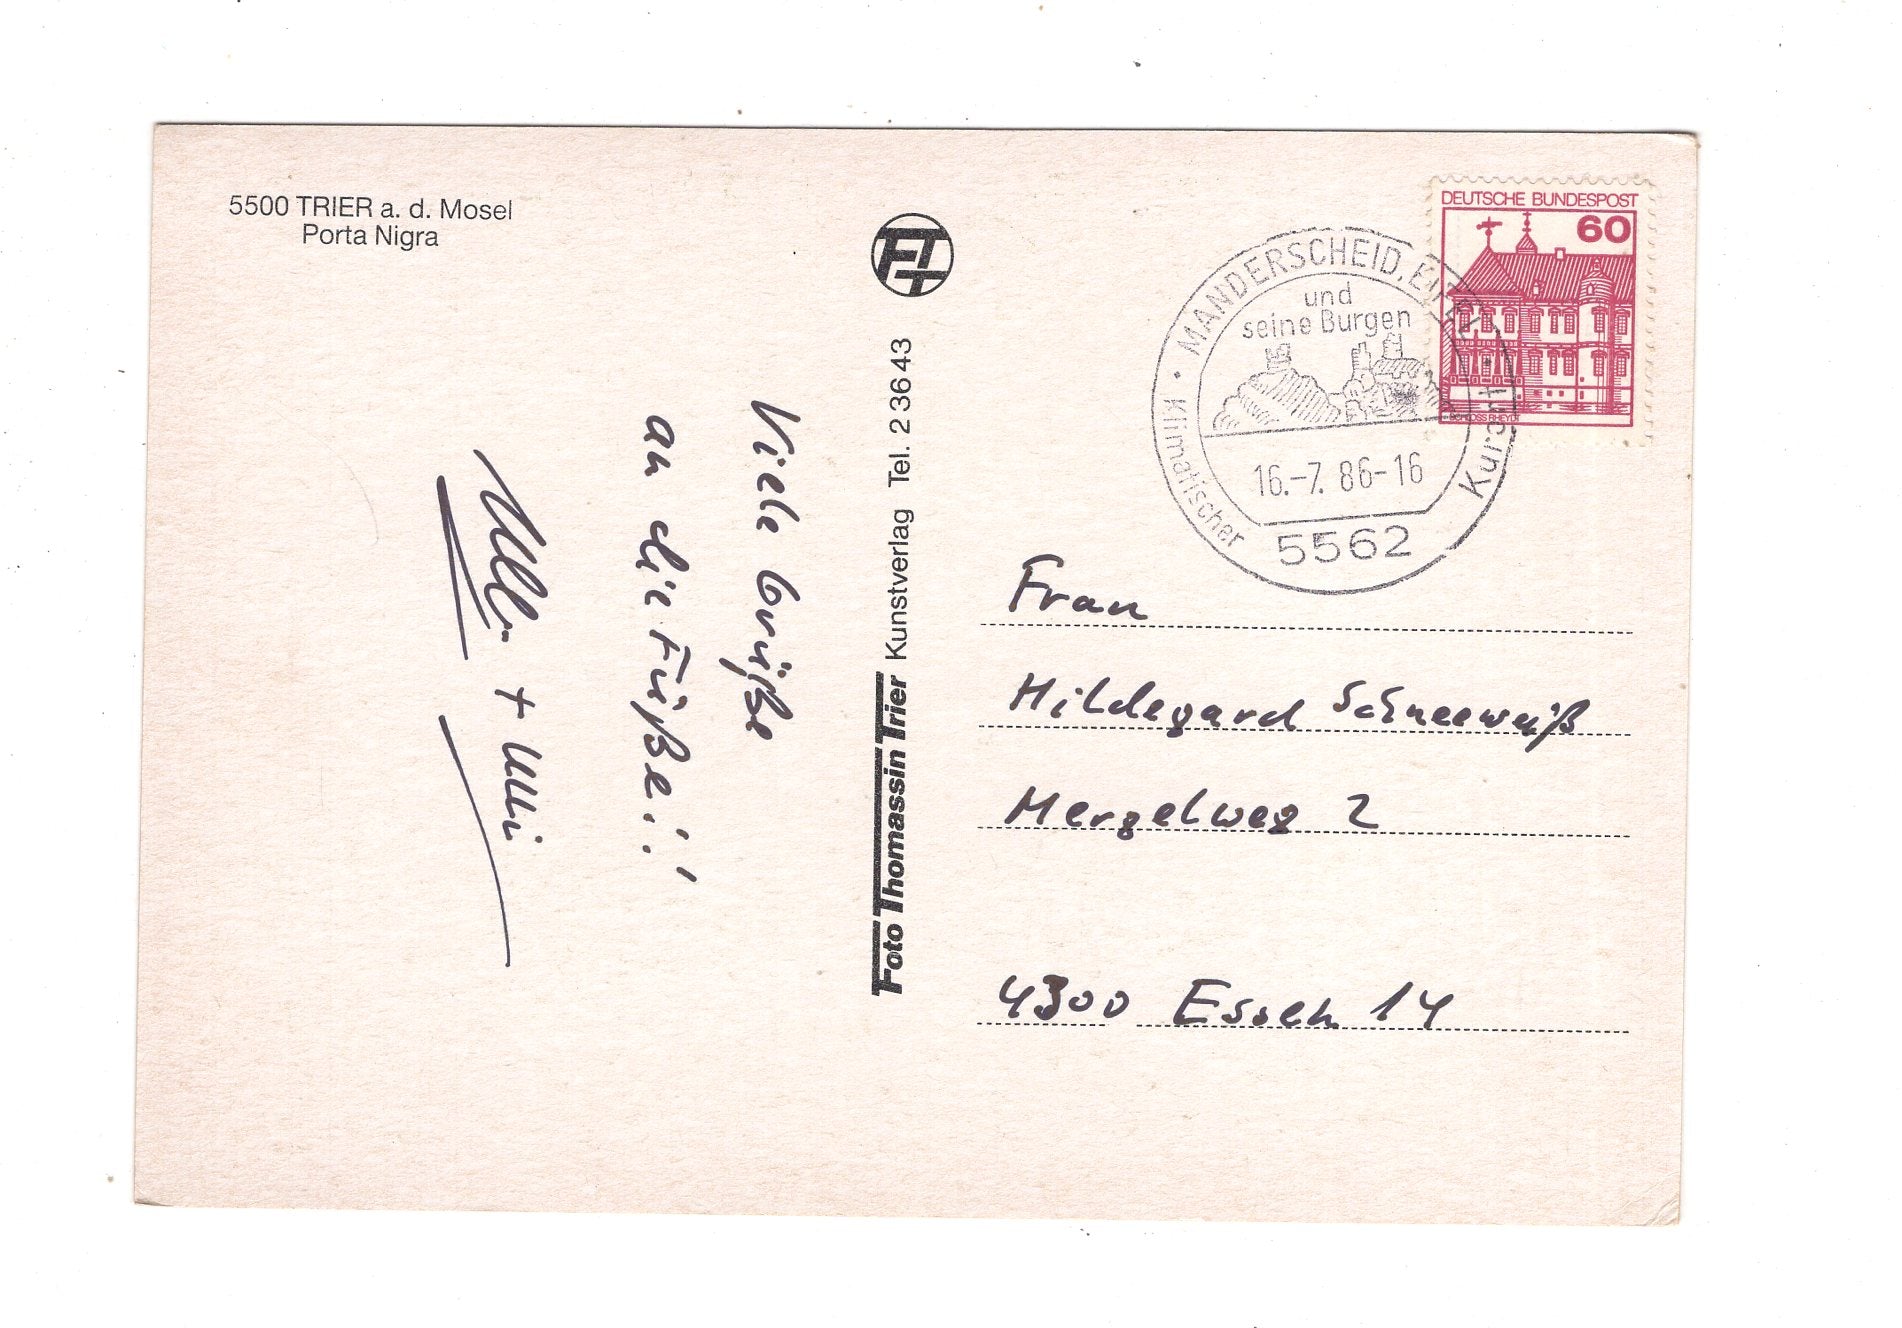 5500 TRIER a. d. Mosel
Porta Nigra
Viele Grüße
an die Füße!!!
+ Ulli
FTT
Foto Thomassin Trier Kunstverlag Tel. 2 36 43
DEUTSCHE BUNDESPOST
60
SCHLOSS RHEYDT
MANDERSCHEID, EIFEL
und
seine Burgen
16.-7. 86-16
Klimatischer Kurort
5562
Frau
Hildegard Schneeweiß
Mergelweg 2
4300 Essen 14